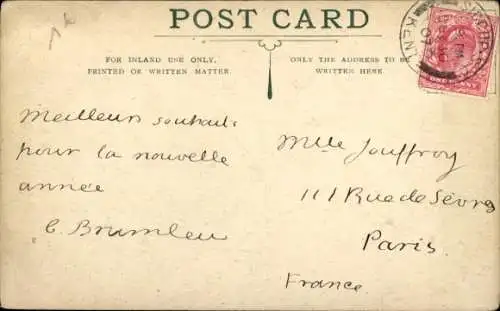 POST CARD
FOR INLAND USE ONLY,
PRINTED OR WRITTEN MATTER.
ONLY THE ADDRESS TO BE
WRITTEN HERE.
KENT
Meilleurs souhaits
pour la nouvelle
année
Mlle Jouffroy
111 Rue de Sèvres
Paris.
France.